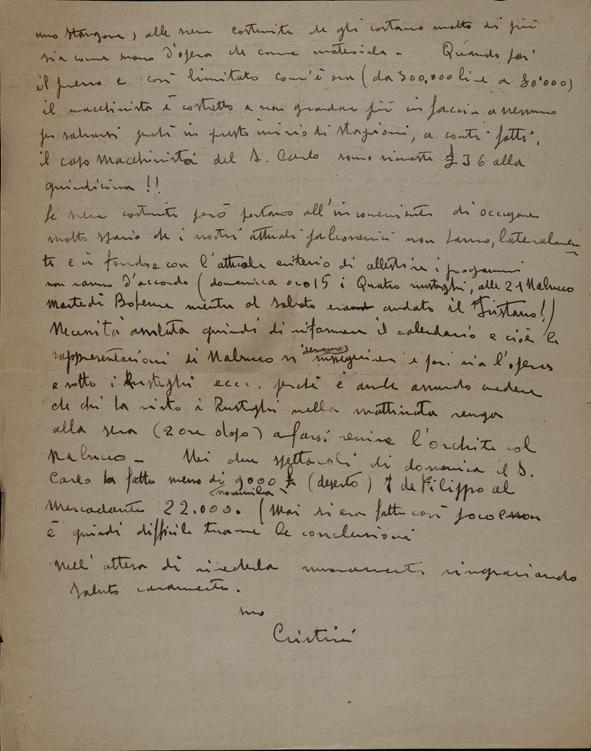 uno Stangone, alle scene costruite che gli costano molto di più
sia come mano d'opera che come materiale - Quando poi
il prezzo è così limitato com'è ora (da 300.000 lire a 80'000)
il macchinista è costretto a non guardare più in faccia a nessuno
per salvarsi perché in questo inizio di stagioni, a conti fatti,
il capo macchinista del S. Carlo sono rimaste £ 36 alla
quindicina !!
Le scene costruite però portano all'inconveniente di occupare
molto spazio che i nostri attuali palcoscenici non hanno, lateralmen
te e in fondo e con l'attuale criterio di allestire i programmi
non vanno d'accordo (domenica ore 15 i Quatro rusteghi, alle 21 Nabucco
Martedì Boheme mentre al Sabato andato il Tristano!)
Necessità assoluta quindi di riformare il calendario e cioè le
rappresentazioni di Nabucco si devono inseguire e poi via l'opera
e sotto i Rusteghi ecc. perché è anche assurdo credere
che chi ha visto i Rusteghi nella mattinata venga
alla sera (2 ore dopo) a farsi venire l'orchite col
Nabucco - Nei due spettacoli di domenica il S.
Carlo ha fatto meno di 9000 £ (deserto) novemila e De Filippo al
Mercadante 22.000. (Mai si era fatto così poco
è quindi difficile trarne le conclusioni
Nell'attesa di rivederla nuovamente ringraziando
saluto caramente.
suo
Cristini